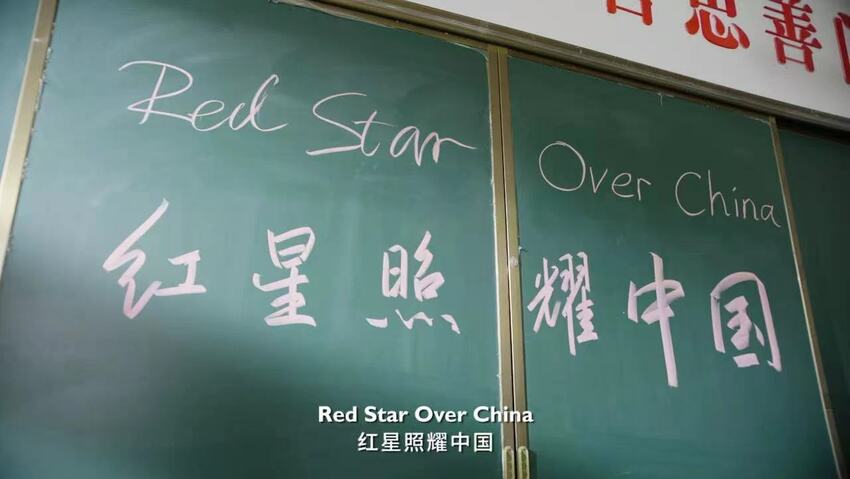 思善
Red Star Over China
红星照耀中国
Red Star Over China
红星照耀中国